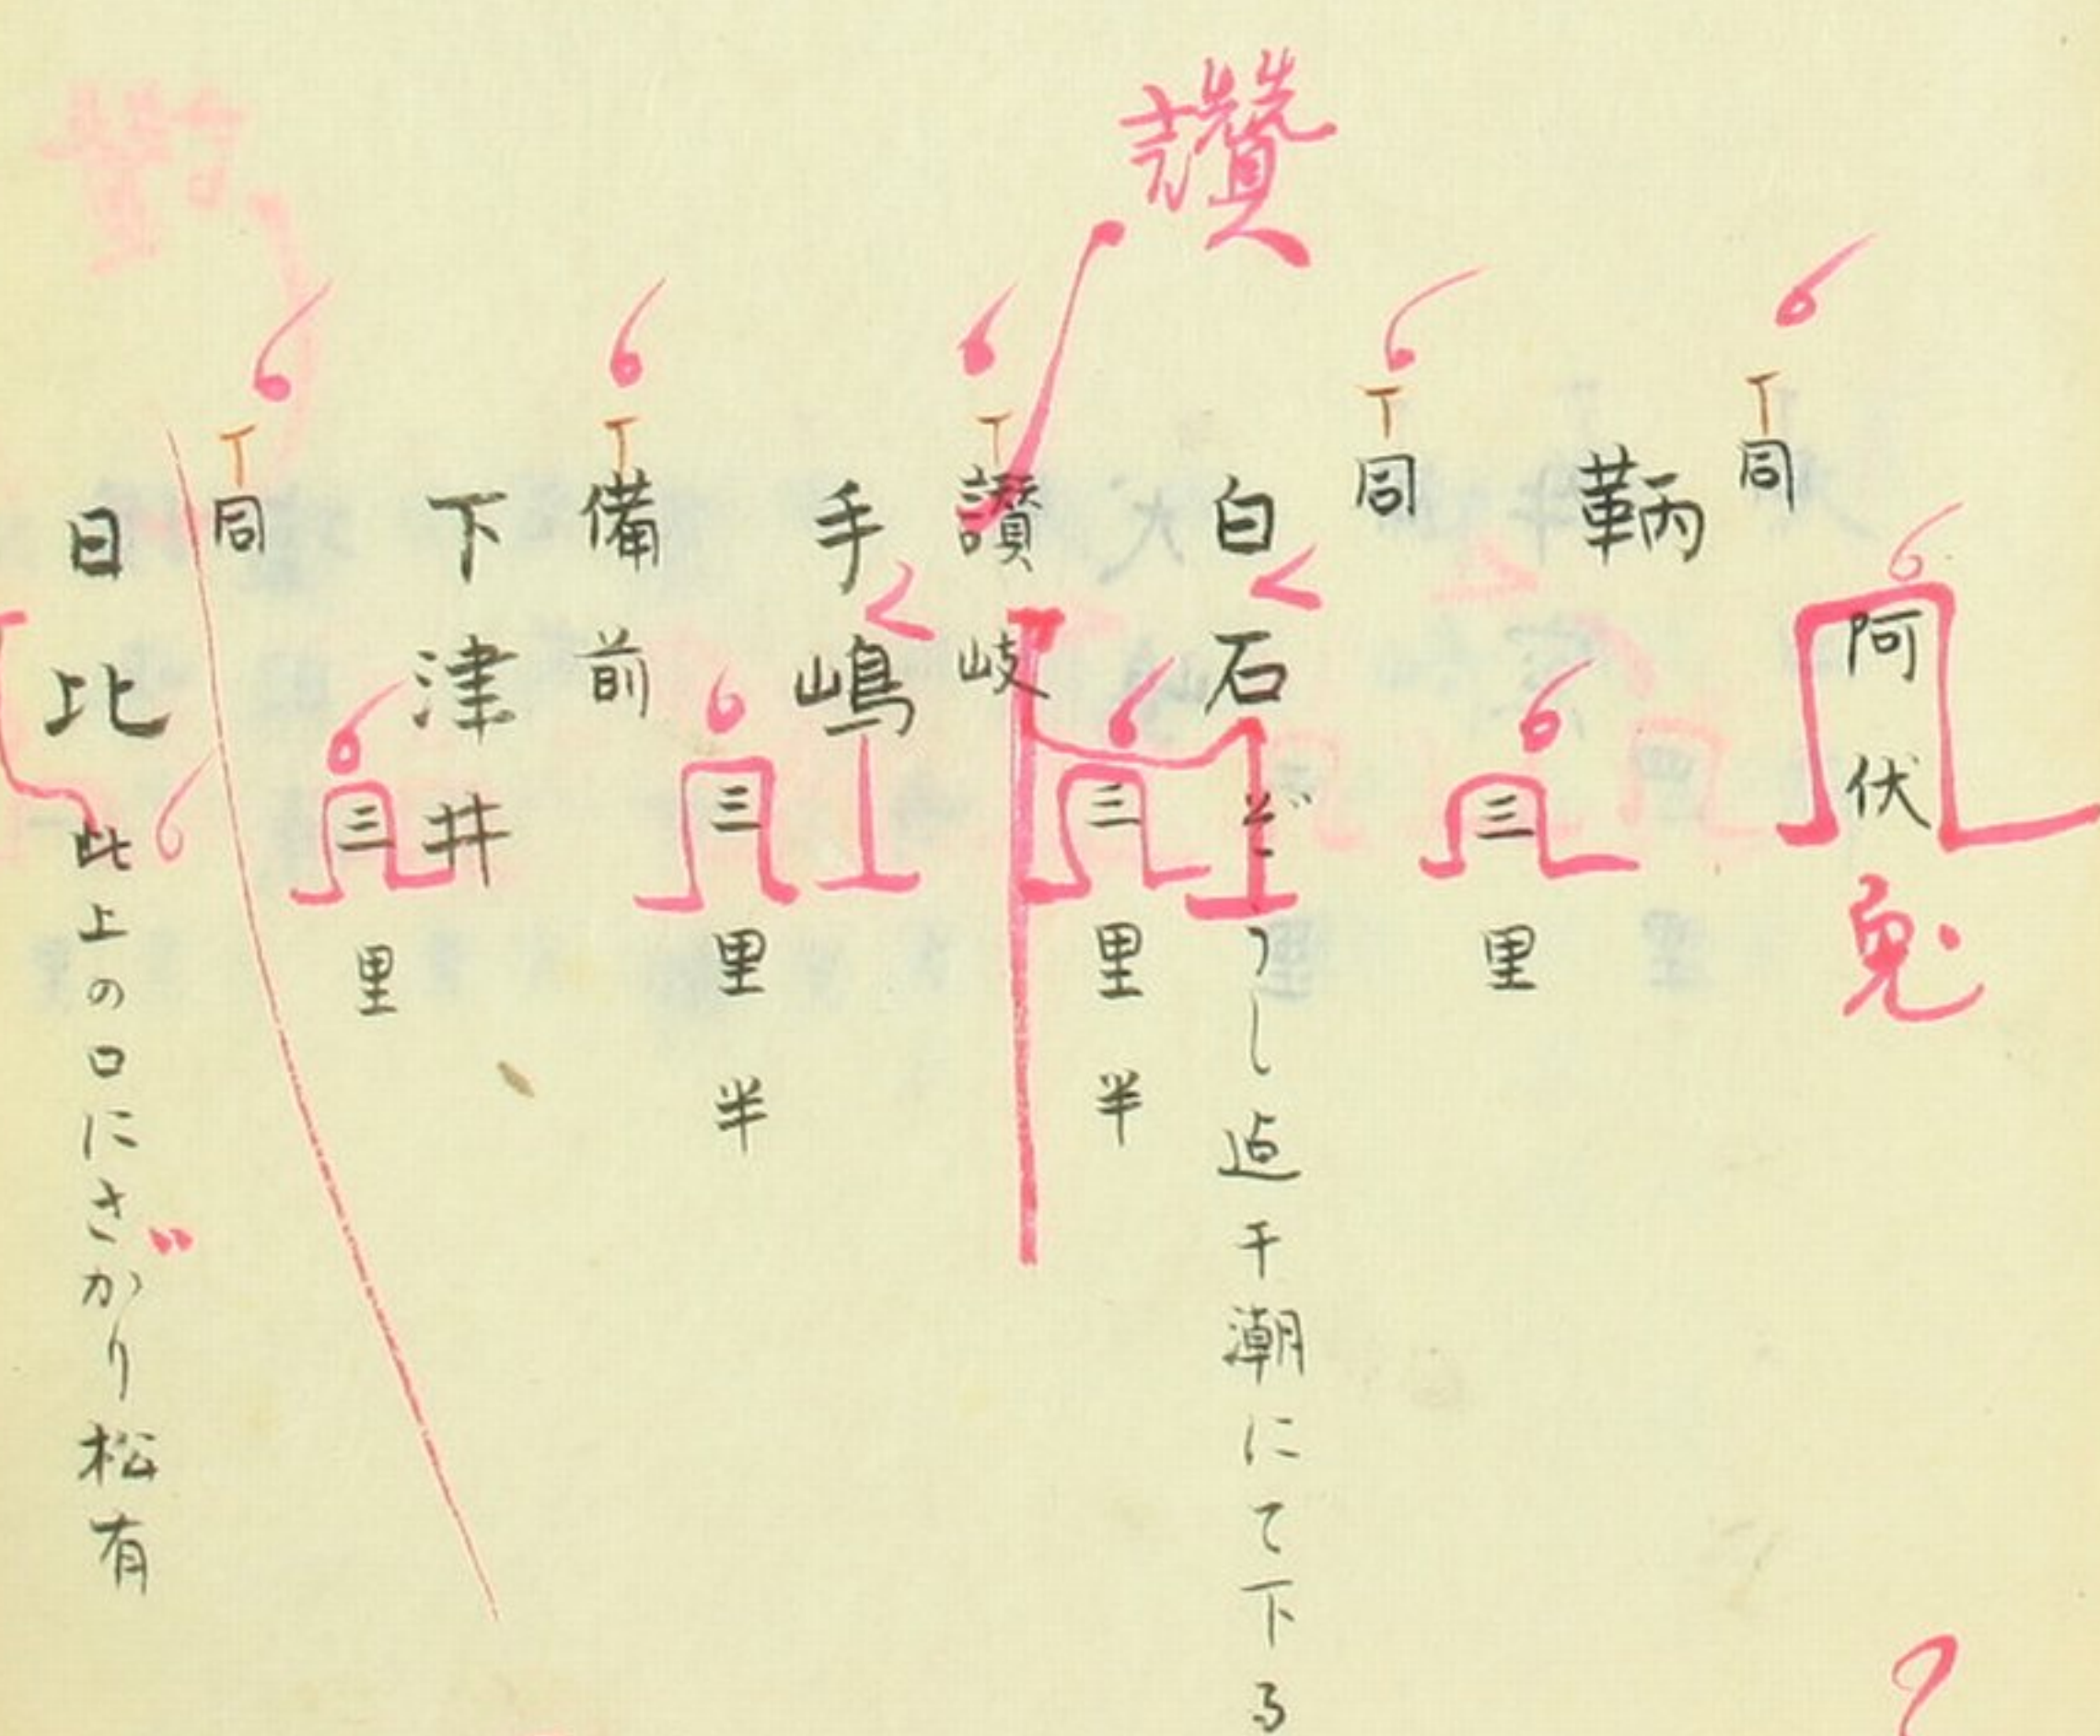 讃
同
阿伏
兎
鞆
三里
同
白石
ぞうし迠干潮にて下る
三里半
讃岐
手嶋
三里半
備前
下津井
三里
同
日比
此上の口にさがり松有